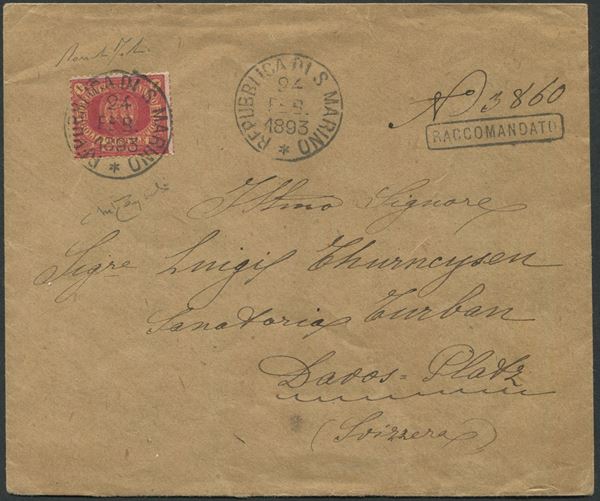 REPUBBLICA DI S. MARINO
24
FEB.
1893
*
REPUBBLICA DI S. MARINO
24
FEB.
1893
*
No 3860
RACCOMANDATO
Illmo Signore
Sigre Luigi Thurneysen
Sanatoria Turban
Davos=Platz
(Svizzera)